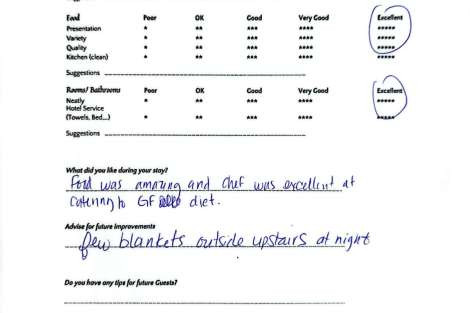 Food Poor OK Good Very Good Excellent
Presentation * ** *** **** *****
Variety * ** *** **** *****
Quality * ** *** **** *****
Kitchen (clean) * ** *** **** *****
Suggestions
Rooms/ Bathrooms Poor OK Good Very Good Excellent
Neatly * ** *** **** *****
Hotel Service
(Towels, Bed...) * ** *** **** *****
Suggestions
What did you like during your stay?
Food was amazing and chef was excellent at
catering to GF diet.
Advise for future improvements
few blankets outside upstairs at night
Do you have any tips for future Guests?